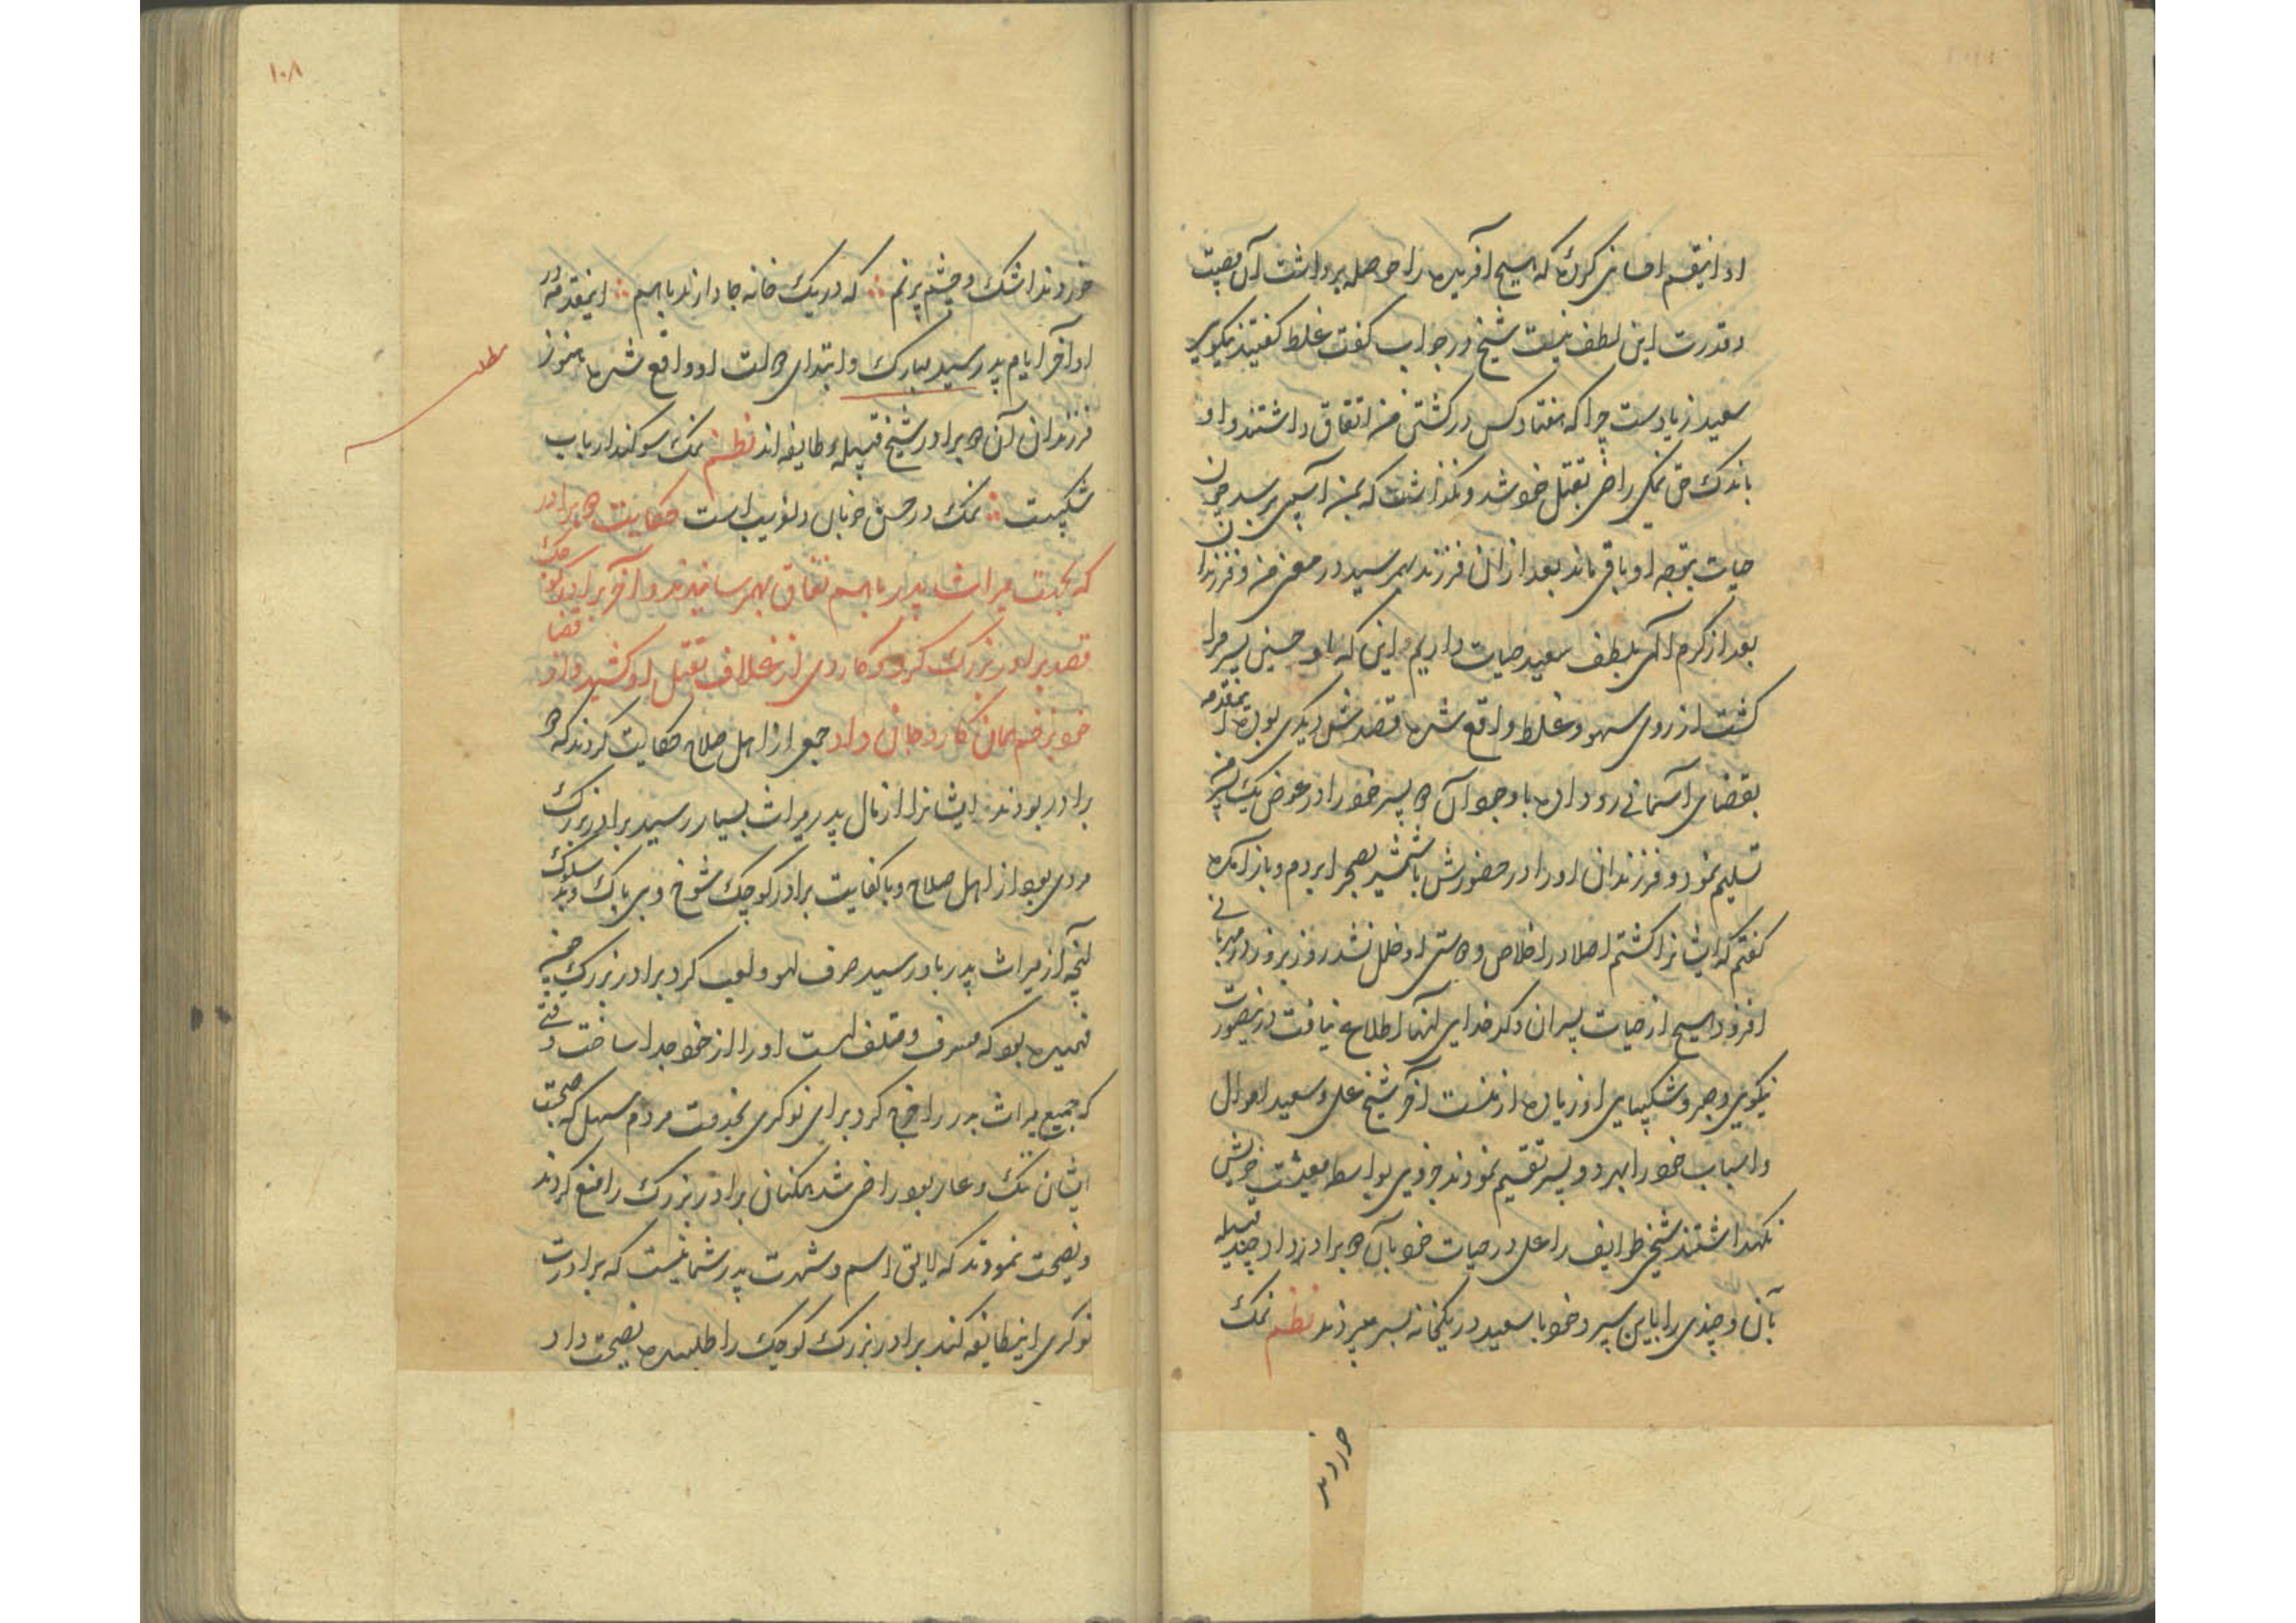 او اینقسم احسانی کرده که هیچ آفریده را حوصله برداشت آن مصیبت
و قدرت این لطف نیست شیخ در جواب گفت غلط گفتید نیکویی
سعید زیادست چرا که هفتاد کس در کشتن من اتفاق داشتند و او
باندک حق نمکی راضی بقتل خود شد و نگذاشت که بمن آسیبی برسد چون
حیات بتوجه او باقی ماند بعد از ان فرزند بهمرسید در معنی من و فرزندان
بعد از کرم الهی بلطف سعید حیات داریم و این که با و حسین پسر مرا
کشت از روی سهو و غلط واقع شده قصدش دیگری بوده اینمقدمه
بقضای آسمانی رو داده با وجود آن دو پسر خود را در عوض یک پسر من
تسلیم نمود و فرزندان او را در حضورش با شمشیر بصحرا بردم و باز آمده
گفتم که ایشانرا کشتم اصلا در اخلاص و دوستی او خلل نشد روز بروز در مهربانی
افزود هیچ از حیات پسران و کدخدایی آنها اطلاع نیافت درینصورت
نیکویی و صبر و شکیبایی او زیاده از منست آخر شیخ علی و سعید اموال
و اسباب خود را بهر دو پسر تقسیم نمودند جزوی بواسطه معیشت خویش
نگهداشتند شیخی طوایف را علی در حیات خود بآن دو برادر داد چند قبیله
بآن و چندی را باین سپرد و خود با سعید در یکخانه بسر میبردند نظم نمک
خوردند
خوردند اشک و چشم پرنم ∴ که در یک خانه جا دارند با هم ∴ اینمقدمه در
اواخر ایام پدر سید مبارک و ابتدای حالت او واقع شده هنوز
فرزندان آن دو برادر شیخ قبیله و طایفه اند نظم نمک سوکند ارباب
شکیبست ∴ نمک در حسن خوبان دلفریب است حکایت دو برادر
که بجهت میراث پدر با هم نفاق بهمرسانیدند و آخر برادر کوچک
قصد برادر بزرگ کرد و کاردی از غلاف بقتل او کشید و از قضا
خود بزخم همان کارد جان داد جمعی از اهل صلاح حکایت کردند که دو
برادر بودند ایشانرا از مال پدر میراث بسیار رسید برادر بزرگ
مردی بود از اهل صلاح و با کفایت برادر کوچک شوخ و بی باک و بد سلوک
آنچه از میراث پدر باو رسید صرف لهو و لعب کرد برادر بزرگ چون
فهمیده بود که مسرف و متلف است او را از خود جدا ساخت وقتی
که جمیع میراث پدر را خرج کرد برای نوکری بخدمت مردم سهل که صحبت
ایشان ننگ و عار بود راضی شد همگنان برادر بزرگ را منع کردند
و نصیحت نمودند که لایق اسم و شهرت پدر شما نیست که برادرت
نوکری اینطایفه کند برادر بزرگ کوچک را طلبیده نصیحت داد
۱۰۸